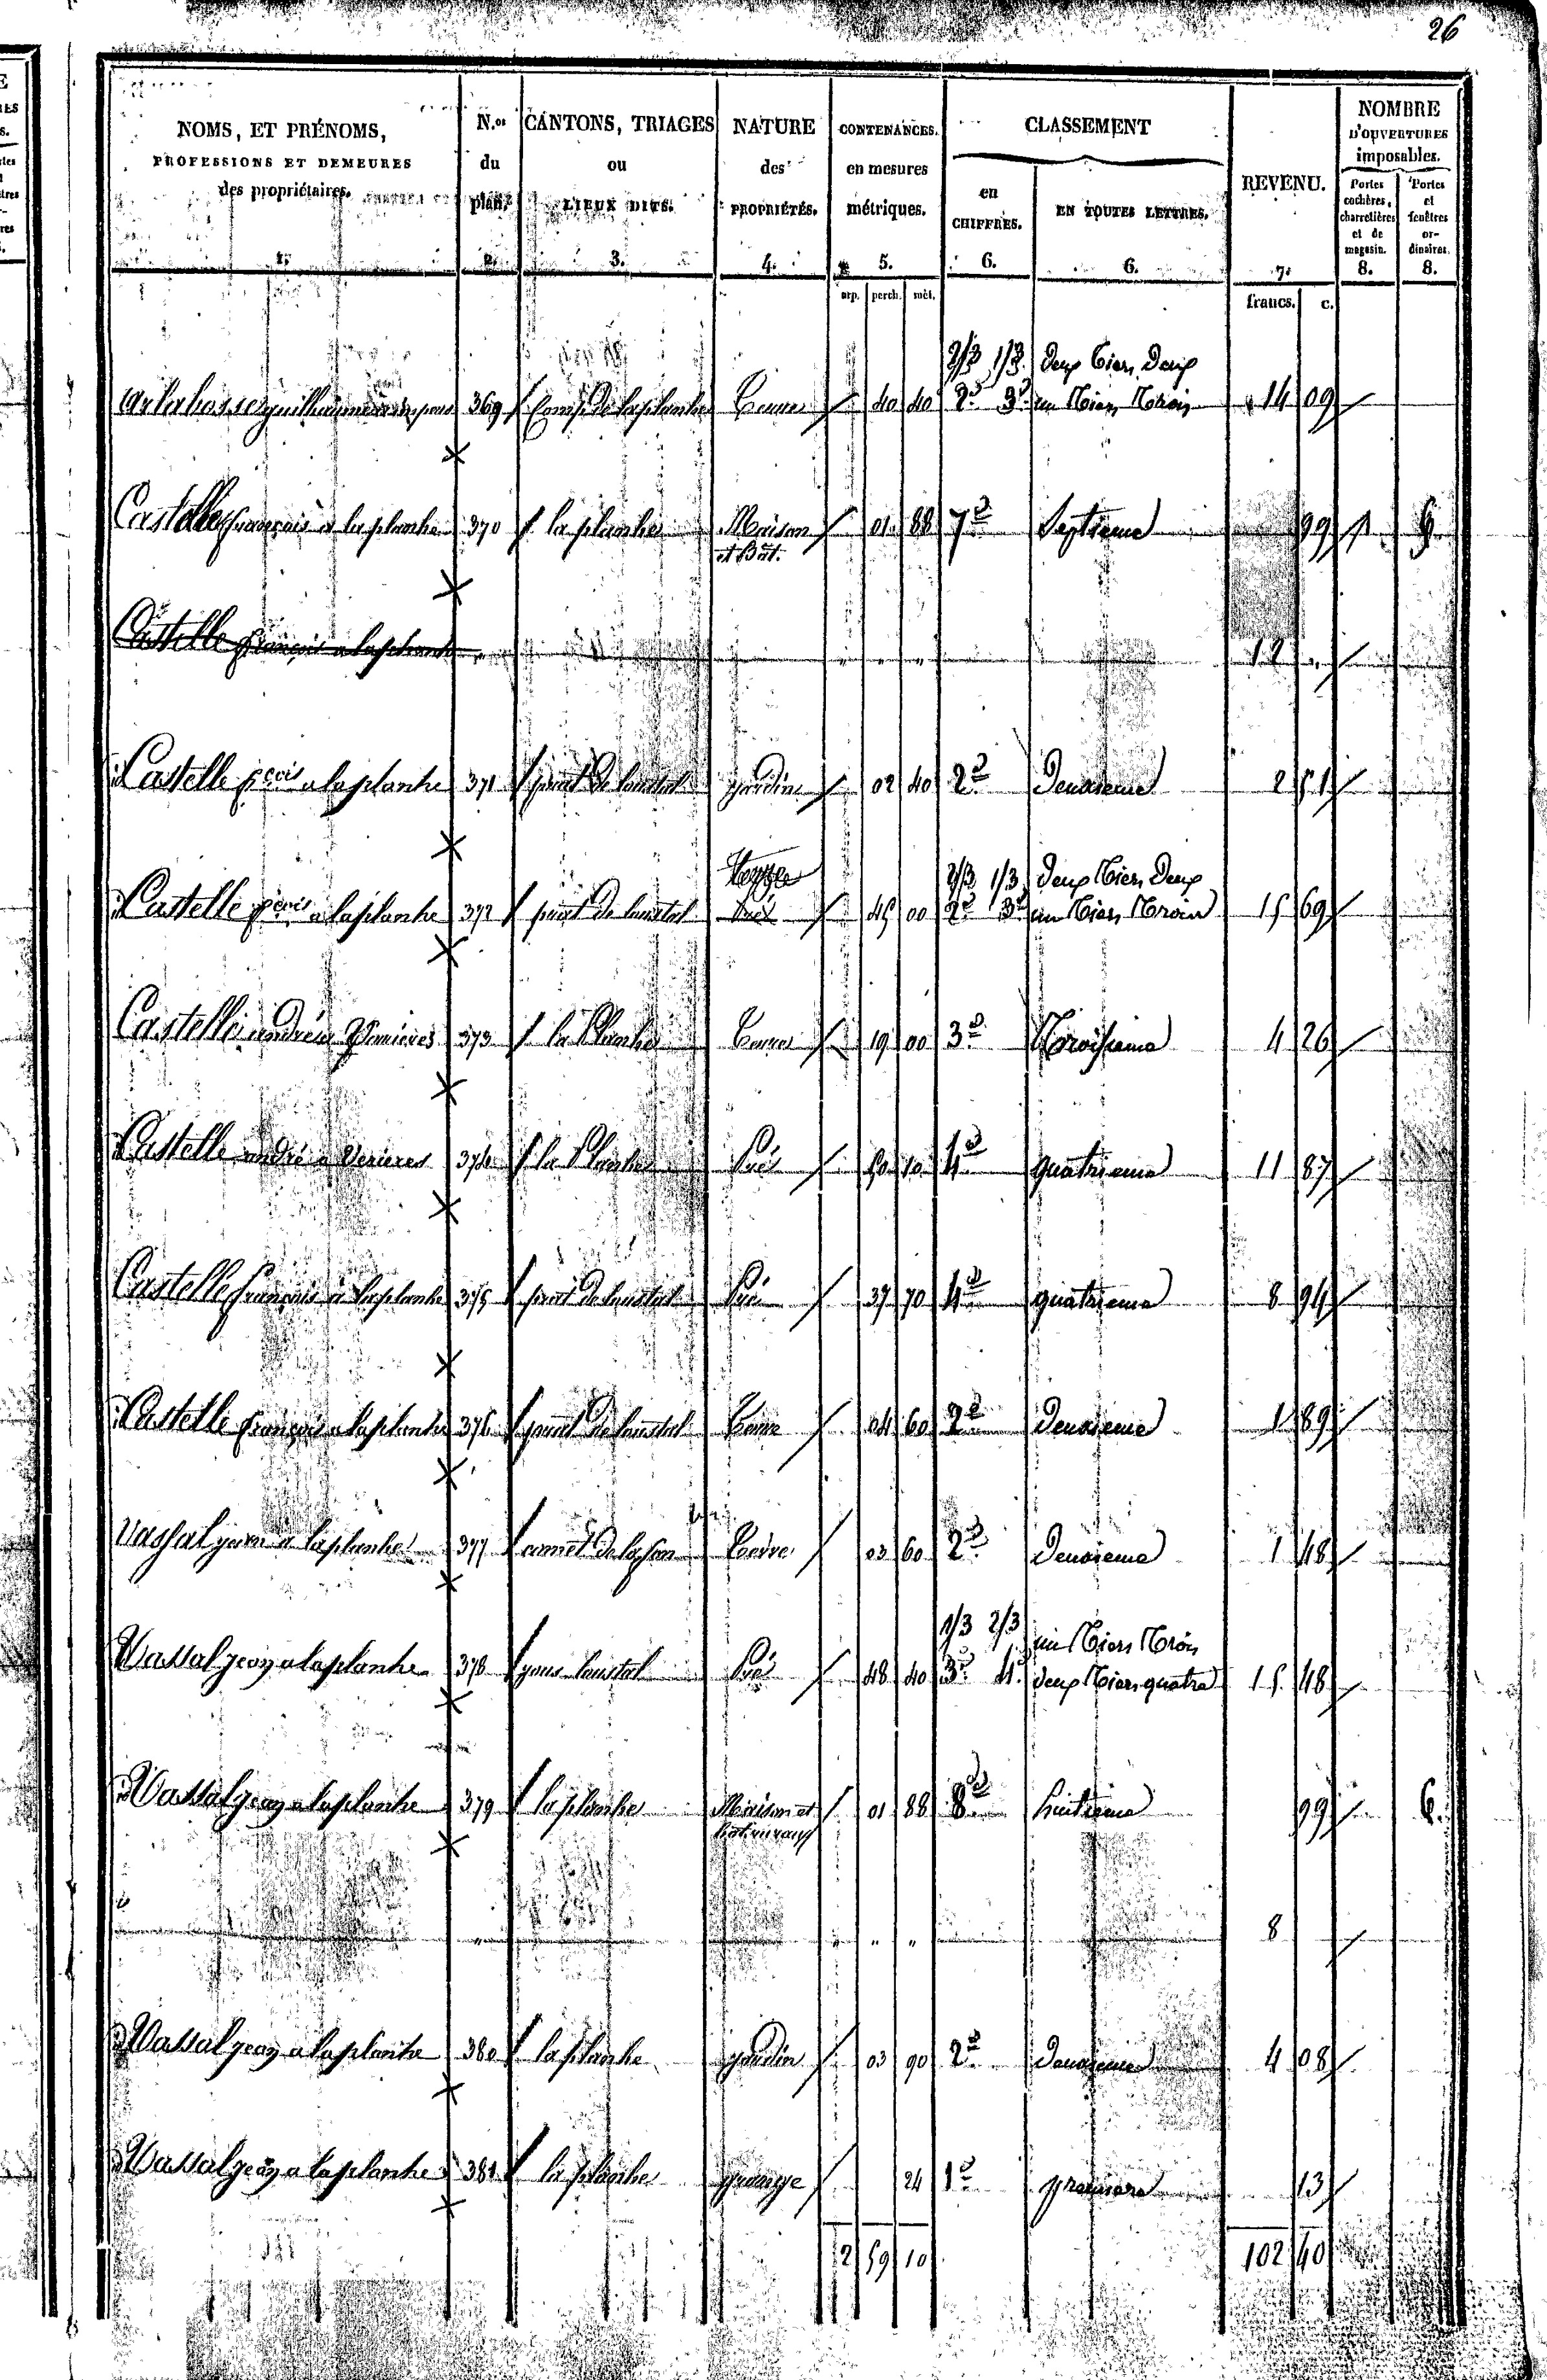 26
NOMS, ET PRÉNOMS,
PROFESSIONS ET DEMEURES
des propriétaires.
1.
N.os
du
plan.
2.
CANTONS, TRIAGES
ou
LIEUX DITS.
3.
NATURE
des
PROPRIÉTÉS.
4.
CONTENANCES.
en mesures
métriques.
5.
arp. perch. mèt.
CLASSEMENT
en
CHIFFRES.
6.
EN TOUTES LETTRES.
6.
REVENU.
7.
francs. c.
NOMBRE
D'OUVERTURES
imposables.
Portes
cochères,
charretières
et de
magasin.
8.
Portes
et
fenêtres
or-
dinaires.
8.
2/3 1/3 Deux Tiers Deux
369 de laplanhe Terre 40 40 2e 3e un Tiers Trois 14 09
Castelle françois à la planhe 370 la planhe Maison 01 88 7e Septieme 99
et Bat.
Castelle françois a laplanhe 12 "
Castelle fcois a laplanhe 371 prat de laustal jardin 02 40 2e Deuxieme 2 51
2/3 1/3 Deux Tiers Deux
Castelle fcois a laplanhe 372 prat de laustal pré 45 00 2e 3e un Tiers Trois 15 69
Castelle andré a 373 la Planhe Terre 19 00 3e Troisieme 4 26
Castelle andré a Verieres 374 la Planhe Pré 50 10 4e quatrieme 11 87
Castelle françois à laplanhe 375 prat de laustal Pré 37 70 4e quatrieme 8 94
Castelle françois a laplanhe 376 prat de laustal Terre 04 60 2e Deuxieme 1 89
Vassal jean a laplanhe 377 Terre 03 60 2e Deuxieme 1 48
1/3 2/3 un Tiers Trois
Vassal jean a laplanhe 378 laustal Pré 48 40 3e 4e deux Tiers quatre 15 48
Vassal jean a laplanhe 379 la planhe Maison et 01 88 8e huitieme 99 6
" " " 8
Vassal jean a laplanhe 380 la planhe jardin 03 90 2e Deuxieme 4 08
Vassal jean a laplanhe 381 la planhe grange 24 1e premiere 13
2 59 10 102 40